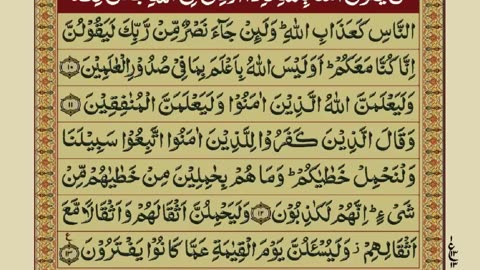 النَّاسِ كَعَذَابِ اللّٰهِ ؕ وَلَئِنْ جَآءَ نَصْرٌ مِّنْ رَّبِّكَ لَيَقُوْلُنَّ
اِنَّا كُنَّا مَعَكُمْ ؕ اَوَلَيْسَ اللّٰهُ بِاَعْلَمَ بِمَا فِيْ صُدُوْرِ الْعٰلَمِيْنَ ۝۱۰
وَلَيَعْلَمَنَّ اللّٰهُ الَّذِيْنَ اٰمَنُوْا وَلَيَعْلَمَنَّ الْمُنٰفِقِيْنَ ۝۱۱
وَقَالَ الَّذِيْنَ كَفَرُوْا لِلَّذِيْنَ اٰمَنُوا اتَّبِعُوْا سَبِيْلَنَا
وَلْنَحْمِلْ خَطٰيٰكُمْ ؕ وَمَا هُمْ بِحٰمِلِيْنَ مِنْ خَطٰيٰهُمْ مِّنْ
شَيْءٍ ؕ اِنَّهُمْ لَكٰذِبُوْنَ ۝۱۲ وَلَيَحْمِلُنَّ اَثْقَالَهُمْ وَاَثْقَالًا مَّعَ
اَثْقَالِهِمْ ؗ وَلَيُسْـَٔلُنَّ يَوْمَ الْقِيٰمَةِ عَمَّا كَانُوْا يَفْتَرُوْنَ ۝۱۳